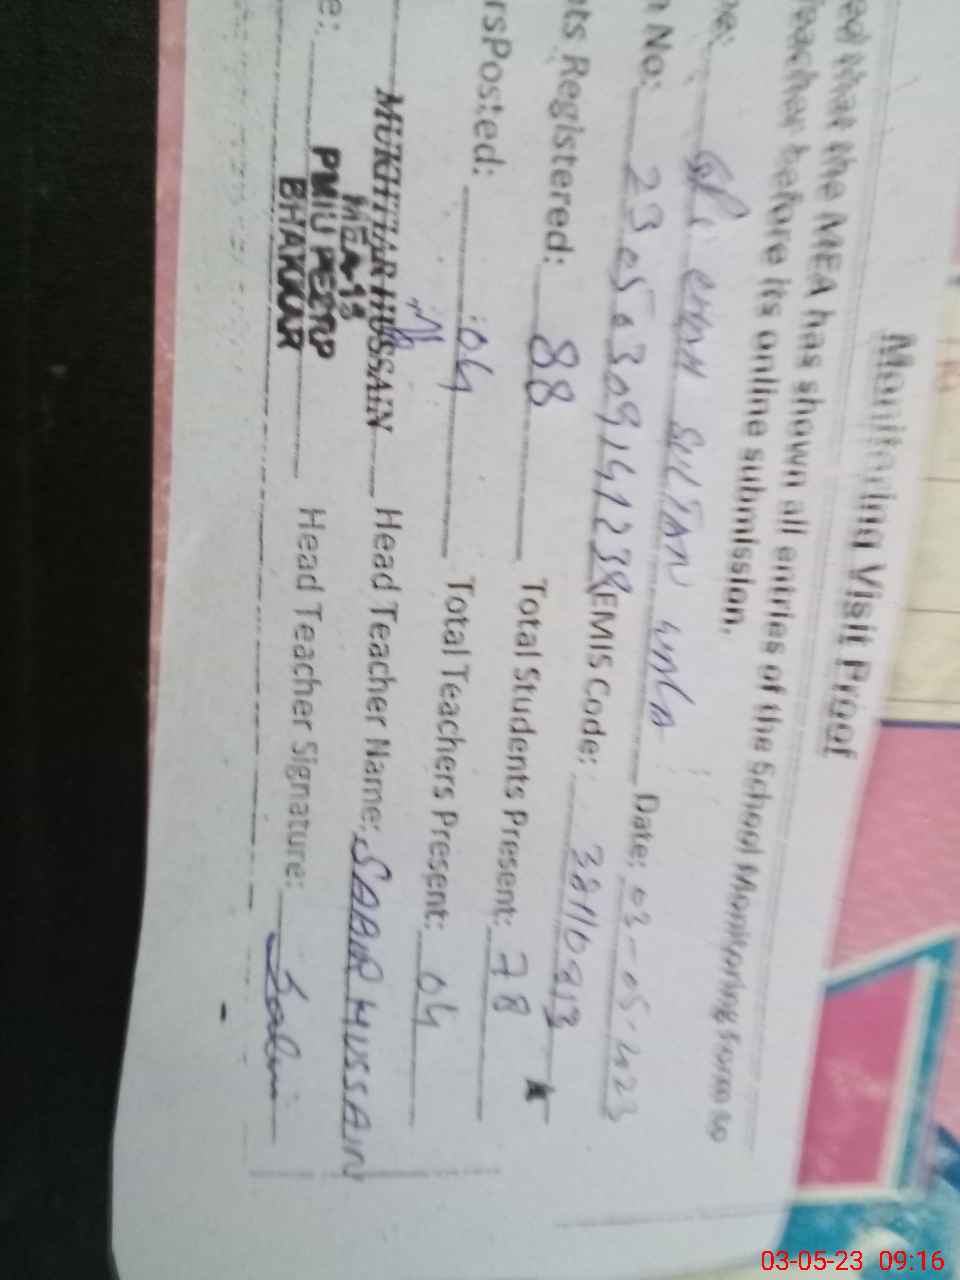 Monitoring Visit Proof
ed that the MEA has shown all entries of the School Monitoring Form to
Teacher before its online submission.
me: SULTAN Date: 03-05-2023
n No: 23050309141238 EMIS Code: 38110913
nts Registered: 88 Total Students Present: 78
rsPosted: 04 Total Teachers Present: 04
MUKHTIAR HUSSAIN Head Teacher Name: SABIR HUSSAIN
MEA-13
PMIU PESTUP
BHAKKAR
e: Head Teacher Signature:
03-05-23 09:16